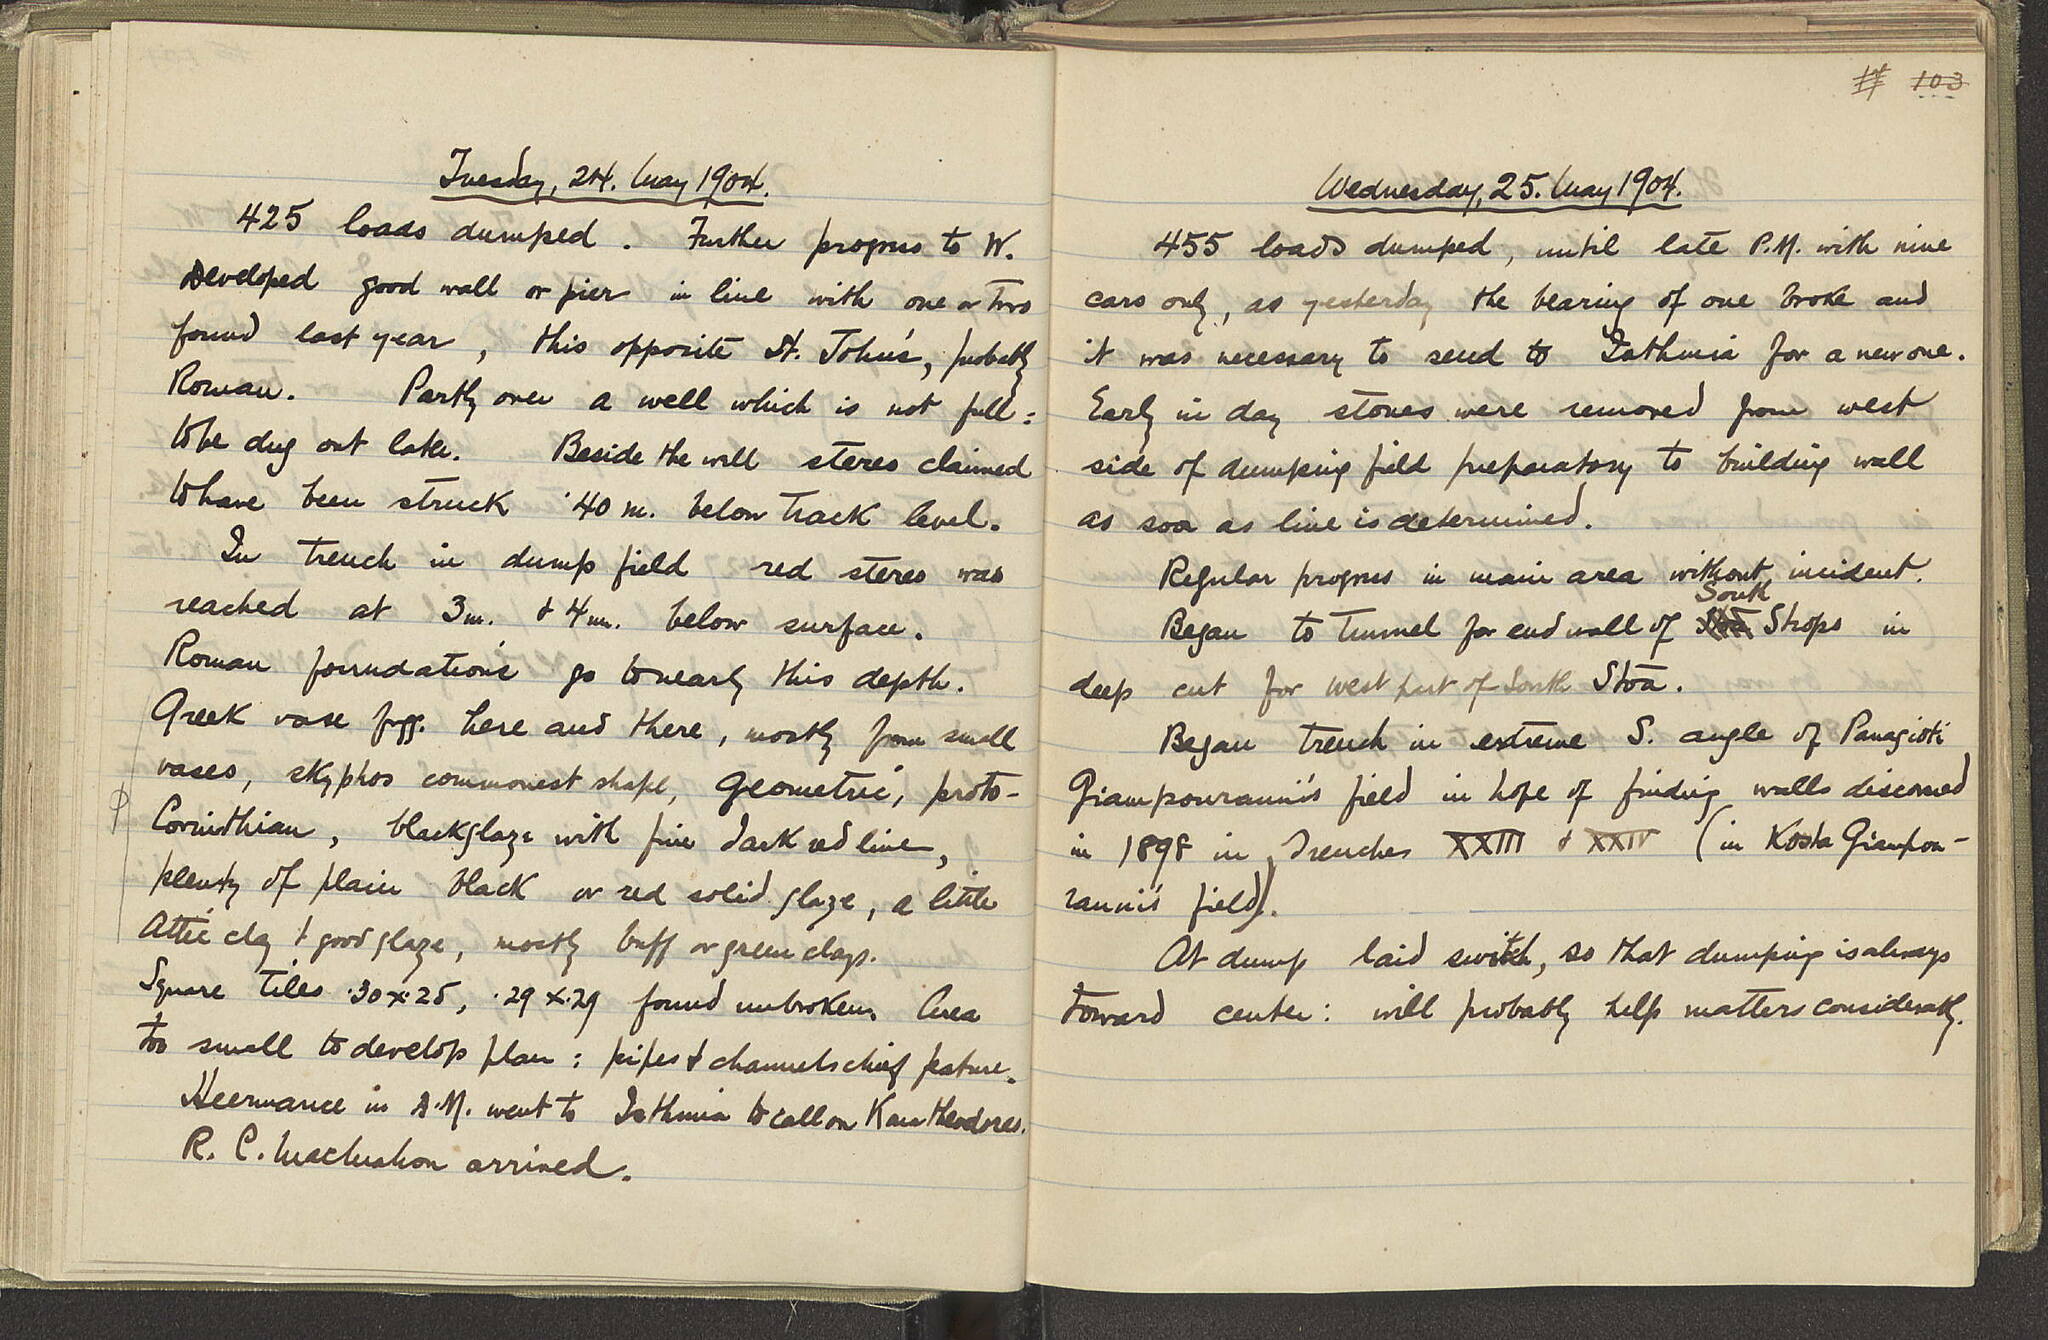 Tuesday, 24. May 1904.
425 loads dumped. Further progress to W.
Developed good wall or pier in line with one or two
found last year, this opposite St. John's, probably
Roman. Partly over a well which is not full:
to be dug out later. Beside the well steres claimed
to have been struck .40 m. below track level.
In trench in dump field red steres was
reached at 3m. & 4m. below surface.
Roman foundations go to nearly this depth.
Greek vase fragg. here and there, mostly from small
vases, skyphos commonest shape, Geometric, proto-
Corinthian, blackglaze with fine dark red line,
plenty of plain black or red solid glaze, a little
Attic clay & good glaze, mostly buff or green clays.
Square tiles .30 x .25, .29 x .29 found unbroken. Area
too small to develop plan: pipes & channels chief feature.
Heermance in A.M. went to Isthmia to call on Kantheodores.
R. C. MacMahon arrived.
103
Wednesday, 25. May 1904.
455 loads dumped, until late P.M. with nine
cars only, as yesterday the bearing of one broke and
it was necessary to send to Isthmia for a new one.
Early in day stones were removed from west
side of dumping field preparatory to building wall
as soon as line is determined.
Regular progress in main area without incident.
Began to tunnel for end wall of South Shops in
deep cut for west part of South Stoa.
Began trench in extreme S. angle of Panagioti
Giampouranni's field in hope of finding walls discovered
in 1898 in Trenches XXIII & XXIV (in Kosta Giampou-
ranni's field).
At dump laid switch, so that dumping is always
toward center: will probably help matters considerably.